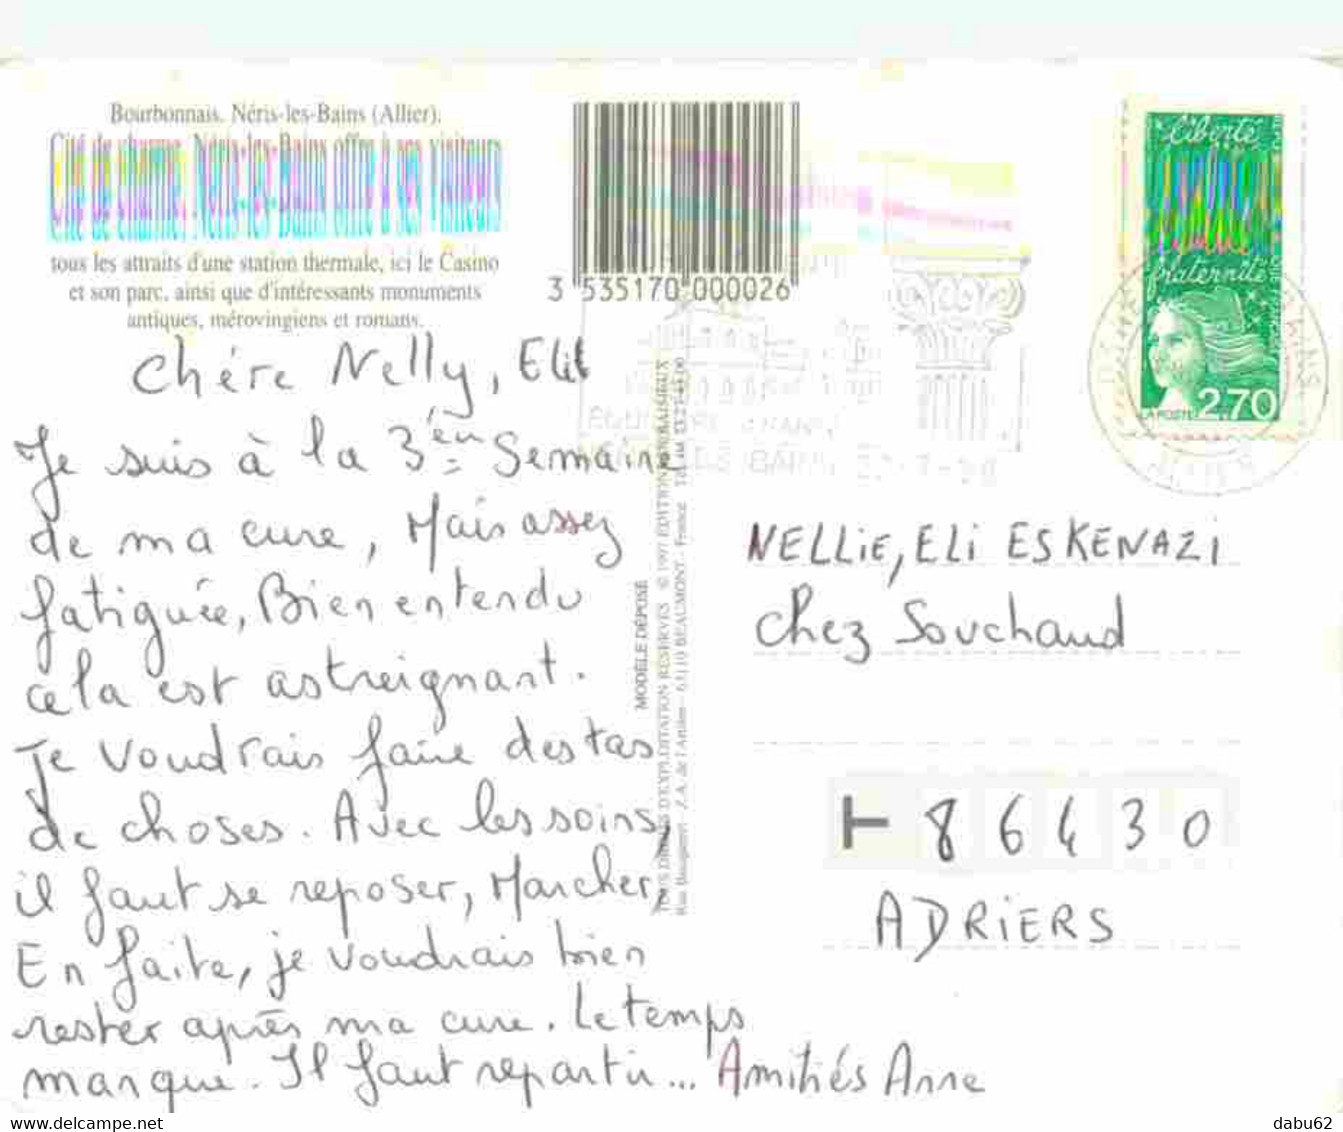 Bourbonnais. Néris-les-Bains (Allier).
Cité de charme, Néris-les-Bains offre à ses visiteurs
tous les attraits d'une station thermale, ici le Casino
et son parc, ainsi que d'intéressants monuments
antiques, mérovingiens et romans.
3 535170 000026
Liberté
fraternité
LA POSTE 2,70
Chére Nelly, Eli
Je suis à la 3ém Semaine
de ma cure, Mais assez
fatiguée, Bien entendu
cela est astreignant.
Je voudrais faire des tas
de choses. Avec les soins,
il faut se reposer, Marcher,
En faite, je voudrais bien
rester après ma cure. Le temps
manque. Il faut repartir... Amitiés Anne
MODÈLE DÉPOSÉ
TOUS DROITS D'EXPLOITATION RÉSERVÉS © 1997 EDITIONS
Z.A. de l'Artière - 63110 BEAUMONT - France
NELLiE, ELi ESKENAZI
Chez Souchaud
86430
ADRiERS
www.delcampe.net
dabu62